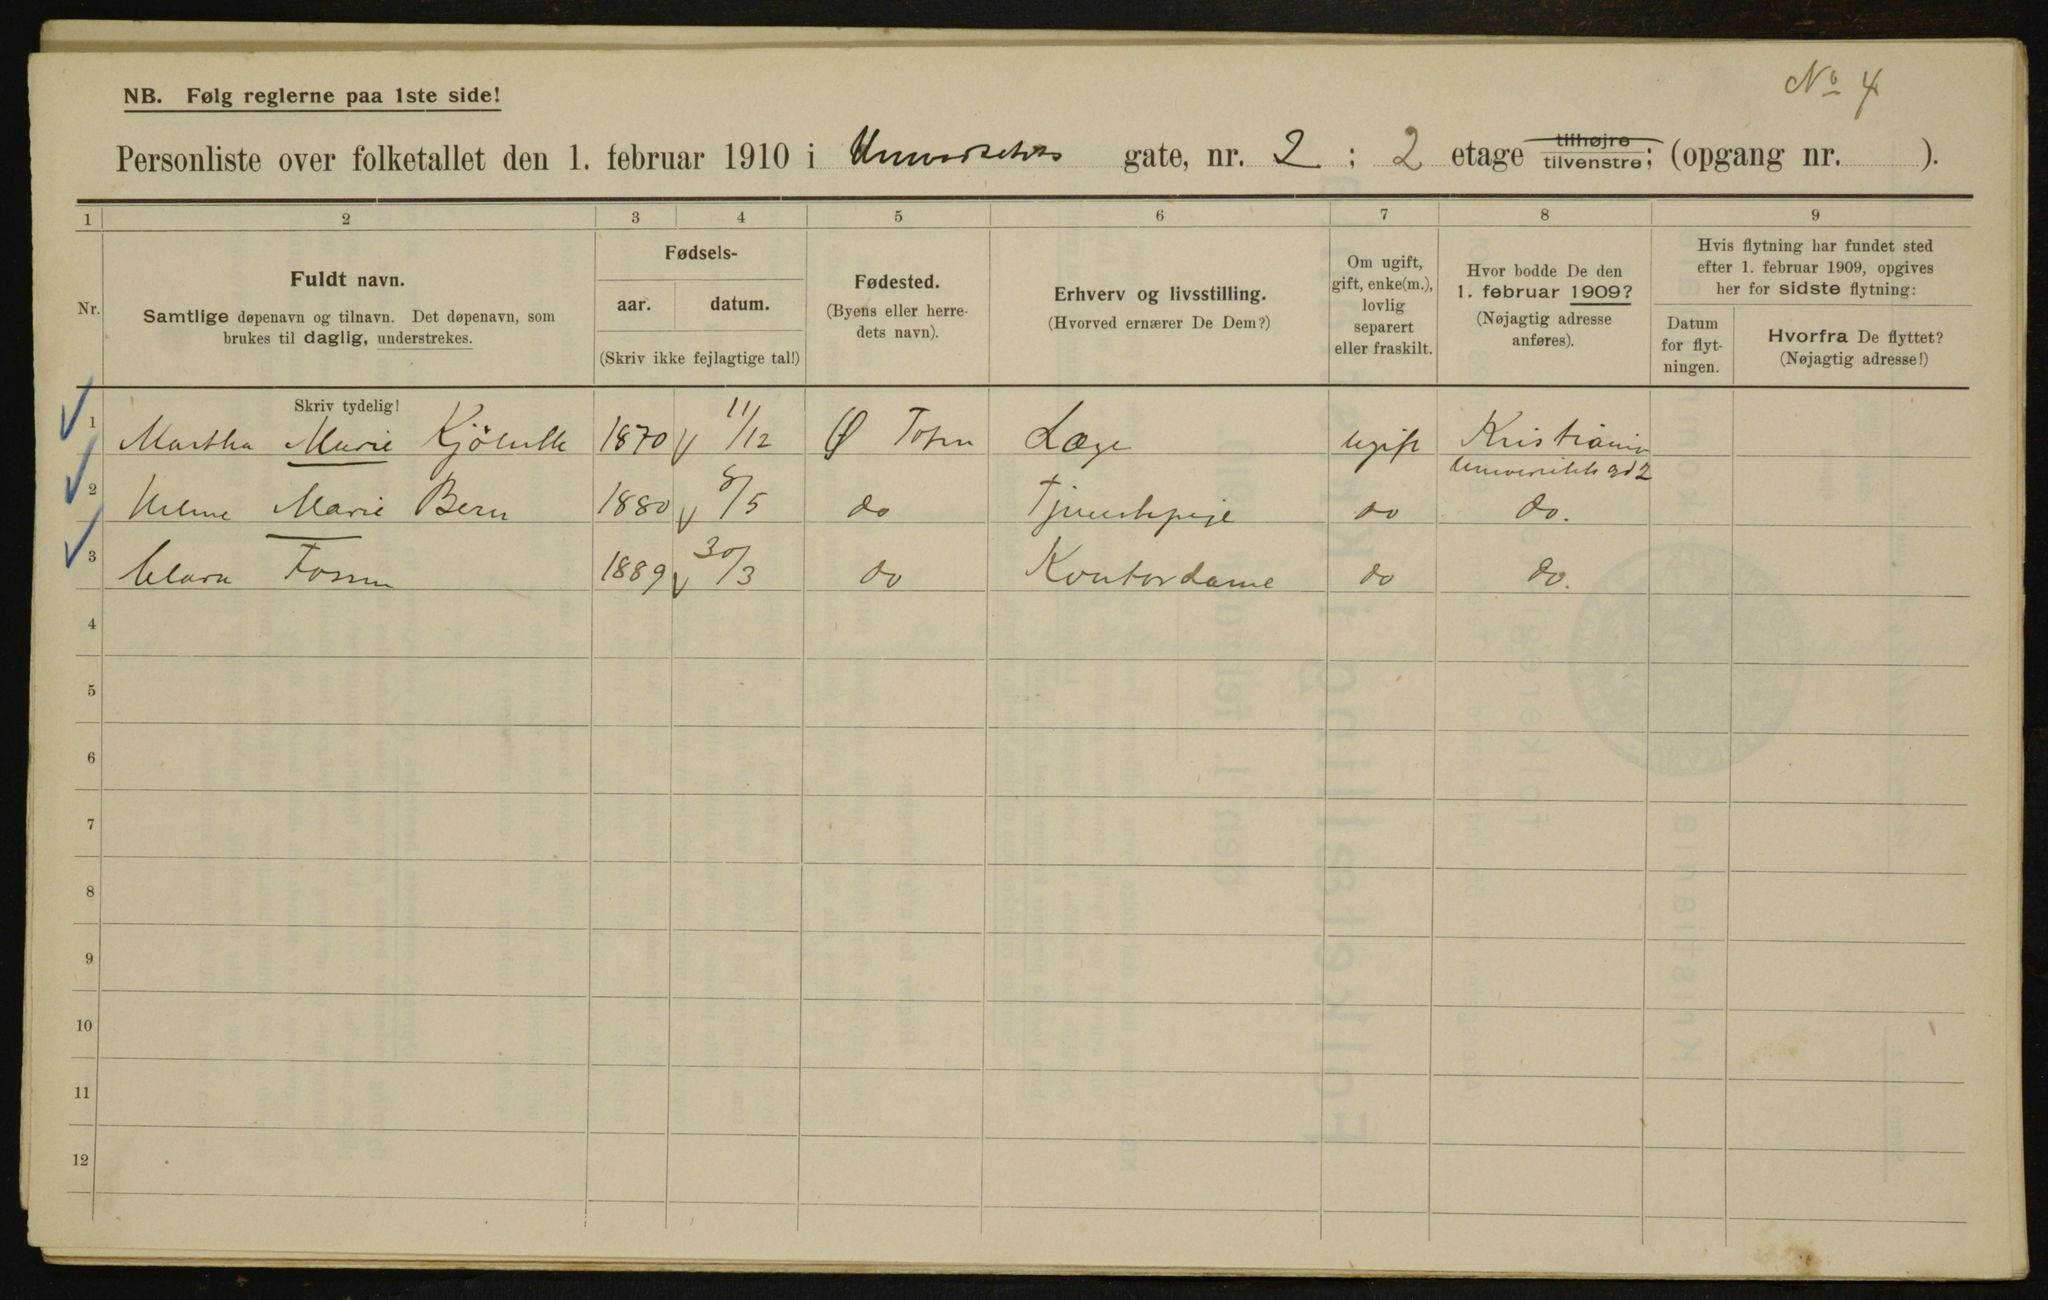 No 4
NB. Følg reglerne paa 1ste side!
Personliste over folketallet den 1. februar 1910 i Universitets gate, nr. 2 ; 2 etage tilhøjre tilvenstre; (opgang nr. ).
1 2 3 4 5 6 7 8 9
Nr.
Fuldt navn.
Samtlige døpenavn og tilnavn. Det døpenavn, som
brukes til daglig, understrekes.
Fødsels-
aar. datum.
(Skriv ikke fejlagtige tal!)
Fødested.
(Byens eller herre-
dets navn).
Erhverv og livsstilling.
(Hvorved ernærer De Dem?)
Om ugift,
gift, enke(m.),
lovlig
separert
eller fraskilt.
Hvor bodde De den
1. februar 1909?
(Nøjagtig adresse
anføres).
Hvis flytning har fundet sted
efter 1. februar 1909, opgives
her for sidste flytning:
Datum
for flyt-
ningen.
Hvorfra De flyttet?
(Nøjagtig adresse!)
Skriv tydelig!
1 Martha Marie 1870 11/12 Ø Toten Læge ugift Kristiania
Universitets gd 2
2 Marie Bern 1880 8/5 do Tjenestepige do do.
3 Clara Fossum 1889 30/3 do Kontordame do do.
4
5
6
7
8
9
10
11
12